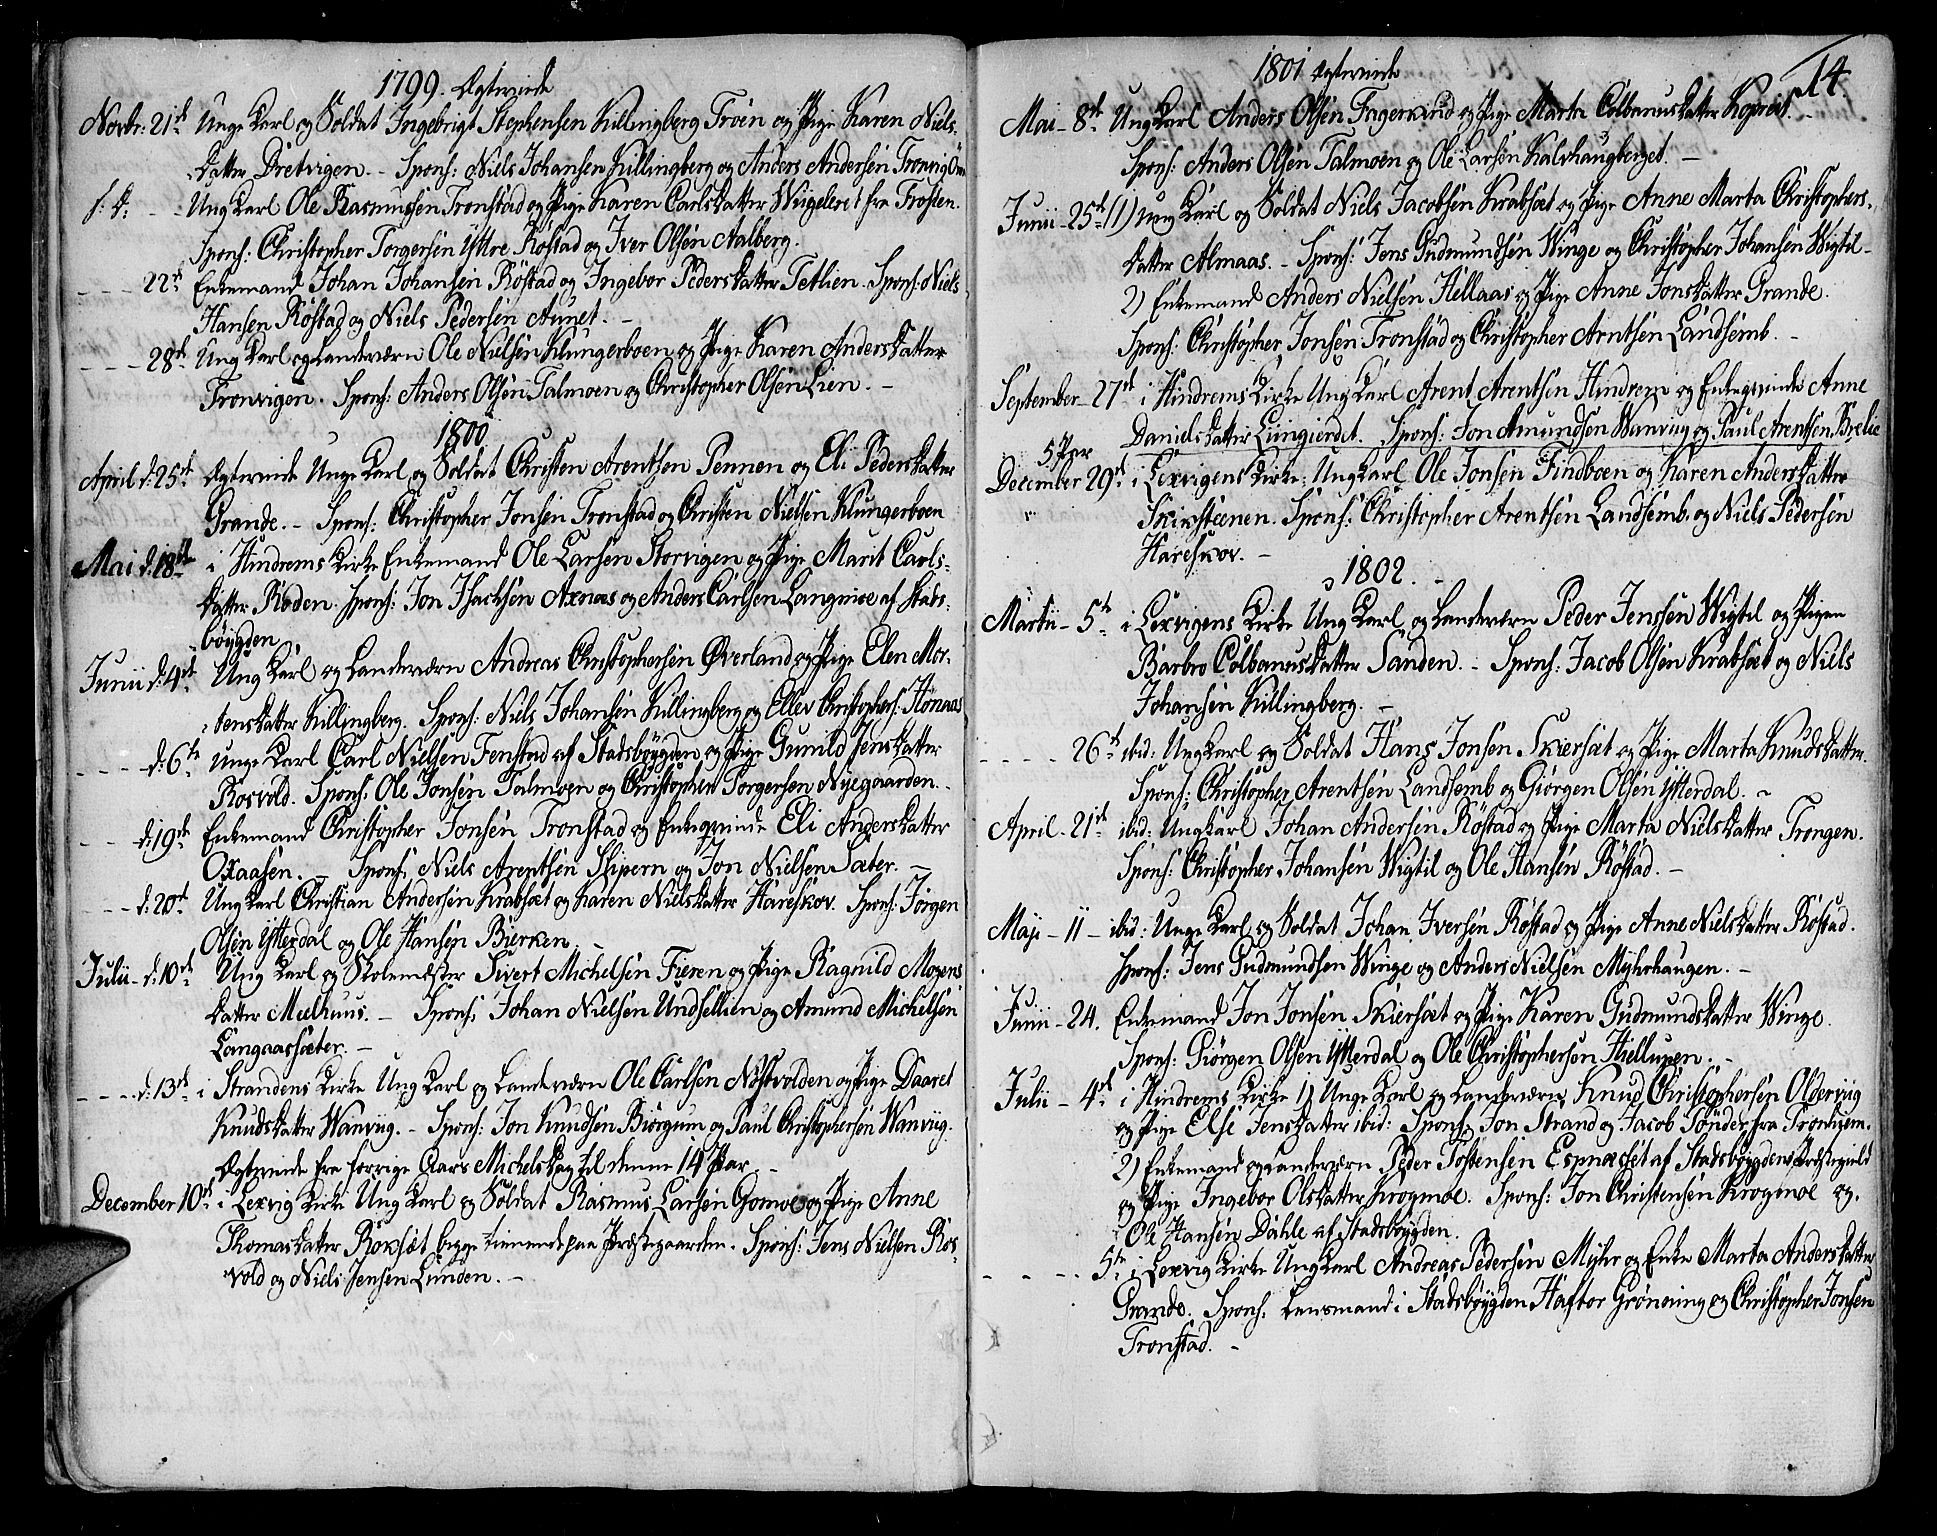 1799. Ægteviede
Novbr: 21de Unge Karl og Soldat Ingebrigt Stephensen Killingberg Troen og Pige Karen Niels-
datter Dretvigen. - Spons: Niels Johansen Killingberg og Anders Andersen Tronvig
s: d: - - Ung Karl Ole Rasmusen Tronstad og Pige Karen Carlsdatter fra Frosten.
Spons: Christopher Torgersen Yttre Røstad og Iver Olsen Aalberg.
- - - 22de Enkemand Johan Johansen Røstad og Ingebor Pedersdatter Tetlien. Spons: Niels
Hansen Røstad og Niels Pedersen Aunet. -
- - - 28de Ung Karl og Landeværn Ole Nielsen Klungerboen og Pige Karen Andersdatter
Tronvigen. Spons: Anders Olsen Talmoen og Christopher Olsen Lien. -
1800
April d: 25de Ægteviede Unge Karl og Soldat Christen Arentsen Pennen og Eli Pedersdatter
Grande. - Spons: Christopher Jonsen Tronstad og Christen Nielsen Klungerboen
Mai d: 18de i Hindrems Kirke Enkemand Ole Larsen Storvigen og Pige Marit Carls-
datter Røden. Spons: Jon Isachsen Axnæs og Anders Carlsen Langmoe af Stads-
bøygden
Junii d: 4de Ung Karl og Landeværn Andreas Christophersen Øverland og Pige Elen Mor-
tensdatter Killingberg. Spons: Niels Johansen Killingberg og Ellev Christophers: Hønaas
- - - - d: 6te Unge Karl Carl Nielsen Fenstad af Stadsbøygden og Pige Gunild Jensdatter
Rosvold. Spons: Ole Jonsen Talmoen og Christopher Torgersen Nygaarden.
- - - d: 19de Enkemand Christopher Jonsen Tronstad og Enkeqvinde Eli Andersdatter
Oxaasen. - Spons: Niels Arentsen Skipern og Jon Nielsen Sæter. -
- - d: 20de Ung Karl Christian Andersen Krabsæt og Karen Nielsdatter Hareskov. Spons: Jörgen
Olsen Ytterdal og Ole Hansen Bierken. -
Julii - d: 10de Ung Karl og Skolemester Sivert Michelsen Fieren og Pige Ragnild Mogens
datter Melhuus. - Spons: Johan Nielsen Undsetlien og Amund Michelsen
Langaassæter. -
- - - - d: 13de i Strandens Kirke Ung Karl og Landeværn Ole Carlsen Nøstvolden og Pige Daaret
Knudsdatter Wanvig. - Spons: Jon Knudsen Biørgum og Paul Christophersen Wanvig.
Ægteviede fra forrige Aars Michelsdag til denne 14 Par. -
December 10de i Lexvig Kirke Ung Karl og Soldat Rasmus Larsen Gomoe og Pige Anne
Thomasdatter Røksæt begge tienende paa Præstegaarden. Spons: Jens Nielsen Ros-
vold og Niels Jensen Lunden. -
1801 Ægteviede
14.
Mai - 8de Ung Karl Anders Olsen Fagerlund og Pige Marta Colbanusdatter Kopreit. -
Spons: Anders Olsen Talmoen og Ole Larsen Kalvhaugberget. -
Junii - 25de (1) ung Karl og Soldat Niels Jacobsen Krabsæt og Pige Anne Marta Christophers-
datter Almaas. - Spons: Jens Gudmundsen Winge og Christopher Johansen Wigtil -
2) Enkemand Anders Nielsen Hellaas og Pige Anne Jonsdatter Grande.
Spons: Christopher Jonsen Tronstad og Christopher Arntsen Landsemb. -
September - 27de i Hindrems Kirke Ung Karl Arent Arentsen Hindrem og Enkeqvinde Anne
Danielsdatter Liingierdet. Spons: Jon Amundsen Wanvig og Paul Arentsen Brelie
5 Par
December 29de i Lexvigens Kirke: Ung Karl Ole Jonsen Findboen og Karen Andersdatter
Skiksteenen. Spons: Christopher Arentsen Landsemb. og Niels Pedersen
Hareskov. -
1802.
Martii - 5te i Lexvigens Kirke Ung Karl og Landeværn Peder Jenssen Wigtil og Pigen
Barbro Colbanusdatter Sanden. - Spons: Jacob Olsen Krabsæt og Niels
Johansen Killingberg. -
- - - - - 26de ibid: Ung Karl og Soldat Hans Jonsen Skiersæt og Pige Marta Knudsdatter.
Spons: Christopher Arentsen Landsemb og Giørgen Olsen Ytterdal. -
April - 21de ibid: Ung Karl Johan Andersen Røstad og Pige Marta Nielsdatter Trongen.
Spons: Christopher Johansen Wigtil og Ole Hansen Røstad. -
Maji - 11 - ibid: Unge Karl og Soldat Johan Iversen Røstad og Pige Anne Nielsdatter Røstad.
Spons: Jens Gudmundsen Winge og Anders Nielsen Myhrhaugen. -
Junii - 24. Enkemand Jon Jonsen Skiersæt og Pige Karen Gudmundsdatter Winge.
Spons: Giørgen Olsen Ytterdal og Ole Christophersen Hiellupen. -
Julii - 4de i Hindrems Kirke 1) Unge Karl og Landeværn Knud Christophersen Oldervig
og Pige Else Jensdatter ibid: Spons: Jon Strand og Jacob Sønder fra Tronhjem.
2) Enkemand og Landeværn Peder Tostensen Espnæsset af Stadsbøygdens Præstegield
og Pige Ingebor Olsdatter Krogmoe. Spons: Jon Christensen Krogmoe og.
Ole Hansen Dahle af Stadsbøygden.
- - - - 5te i Lexvig Kirke Ung Karl Andreas Pedersen Myhr og Enke Marta Andersdatter
Grande. Spons: Lensmand i Stadsbøygden Haftor Grönning og Christopher Jonsen
Tronstad. -